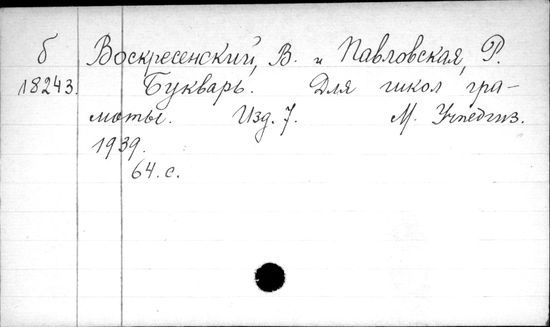 б Воскресенский, В. и Павловская, Р.
18243. Букварь. Для школ гра-
моты. Изд. 7. М. Учпедгиз.
1939.
64. с.